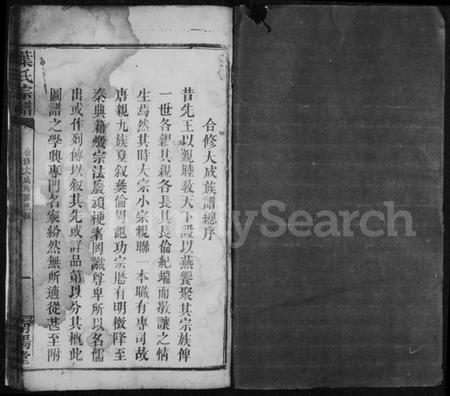 合修大成族譜總序
昔先王以親睦敦天下設以燕饗聚其宗族俾
一世各親其親各長其長倫紀端而敬讓之情
生焉然其時大宗小宗親聯一本職有專司故
唐親九族夏叙彜倫周記功宗歷有明徵降至
秦典籍燬宗法廢頑梗者罔識尊卑所以名儒
出或作列傳以叙其先或詳品第以分其概此
圖譜之學興專門名家紛然無所適從甚至附
葉氏宗譜
合修大成族譜總序
一
陽堂
Search